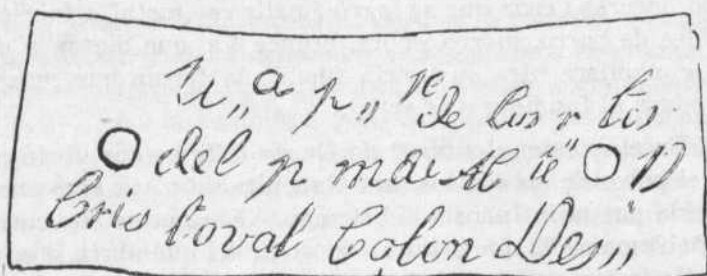 U,, a p,, te de los r tos
del p mer Al te D
Cristoval Colon Des,,